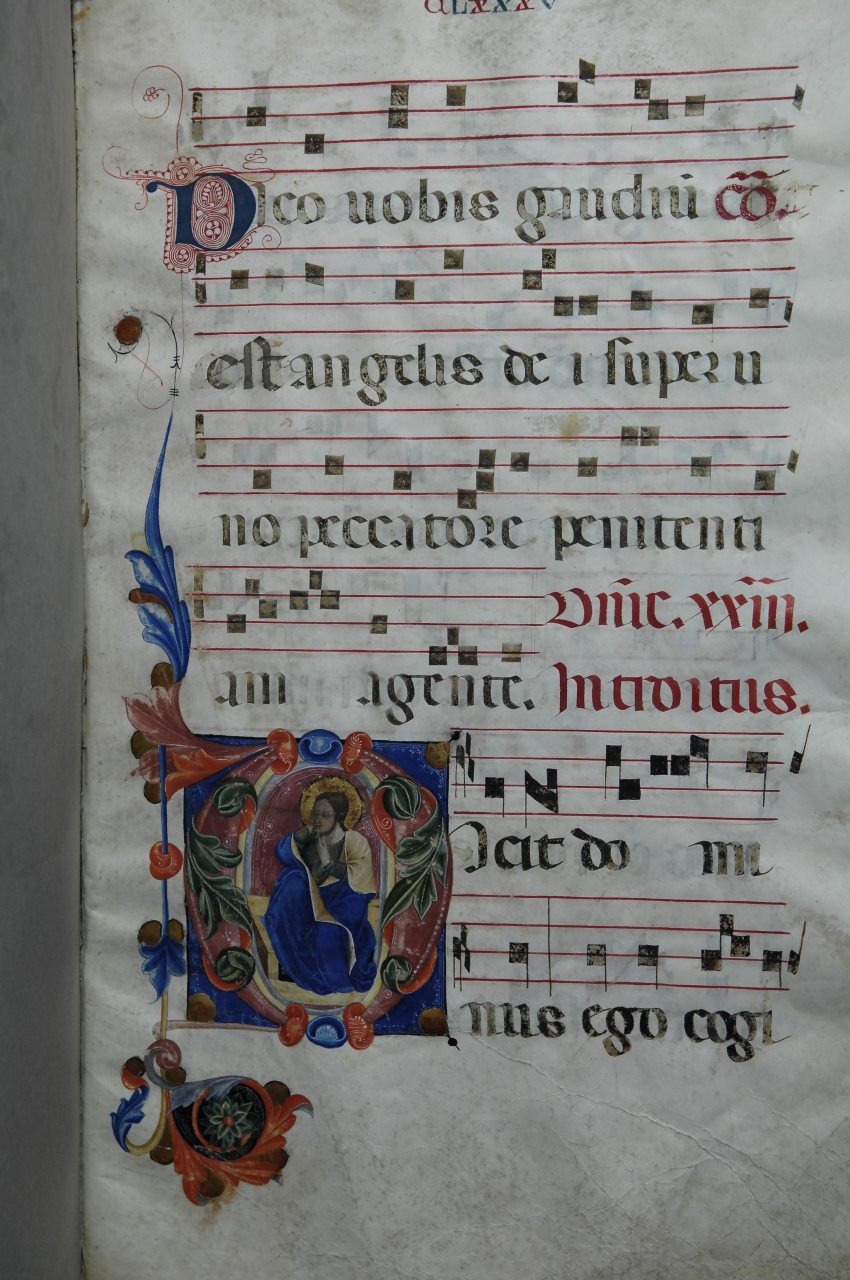 CLXXXV
Dico uobis gaudiū cō.
est angelis de i super u
no peccatore penitenti
am agente. Dn̄ic. xxiii.
Introitus.
Dicit do mi
nus ego cogi